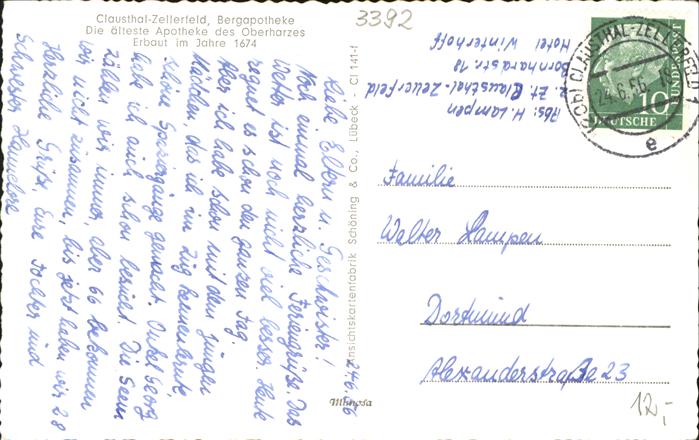 Clausthal-Zellerfeld, Bergapotheke
Die älteste Apotheke des Oberharzes
Erbaut im Jahre 1674
3392
24.6.56
Liebe Eltern u. Geschwister!
Noch einmal herzliche Feriengrüße. Das
Wetter ist noch nicht viel besser. Heute
regnet es schon den ganzen Tag.
Aber ich habe schon mit dem jungen
Mädchen, das ich im Zug kennenlernte
schöne Spaziergänge gemacht. Onkel Georg
habe ich auch schon besucht. Die Seen
zählen wir immer, aber 66 bekommen
wir nicht zusammen, bis jetzt haben wir 28
Herzliche Grüße Eure Tochter und
Schwester Hannelore
Ansichtskartenfabrik Schöning & Co., Lübeck · Cl 141-f
Mimosa
Abs. H. Lampen
z. Zt. Clausthal-Zellerfeld
Bornhardstr. 18
Hotel Winterhoff
CLAUSTHAL-ZELLERFELD
24.6.56
e
10
DEUTSCHE
BUNDESPOST
Familie
Walter Lampen
Dortmund
Alexanderstraße 23
12,-